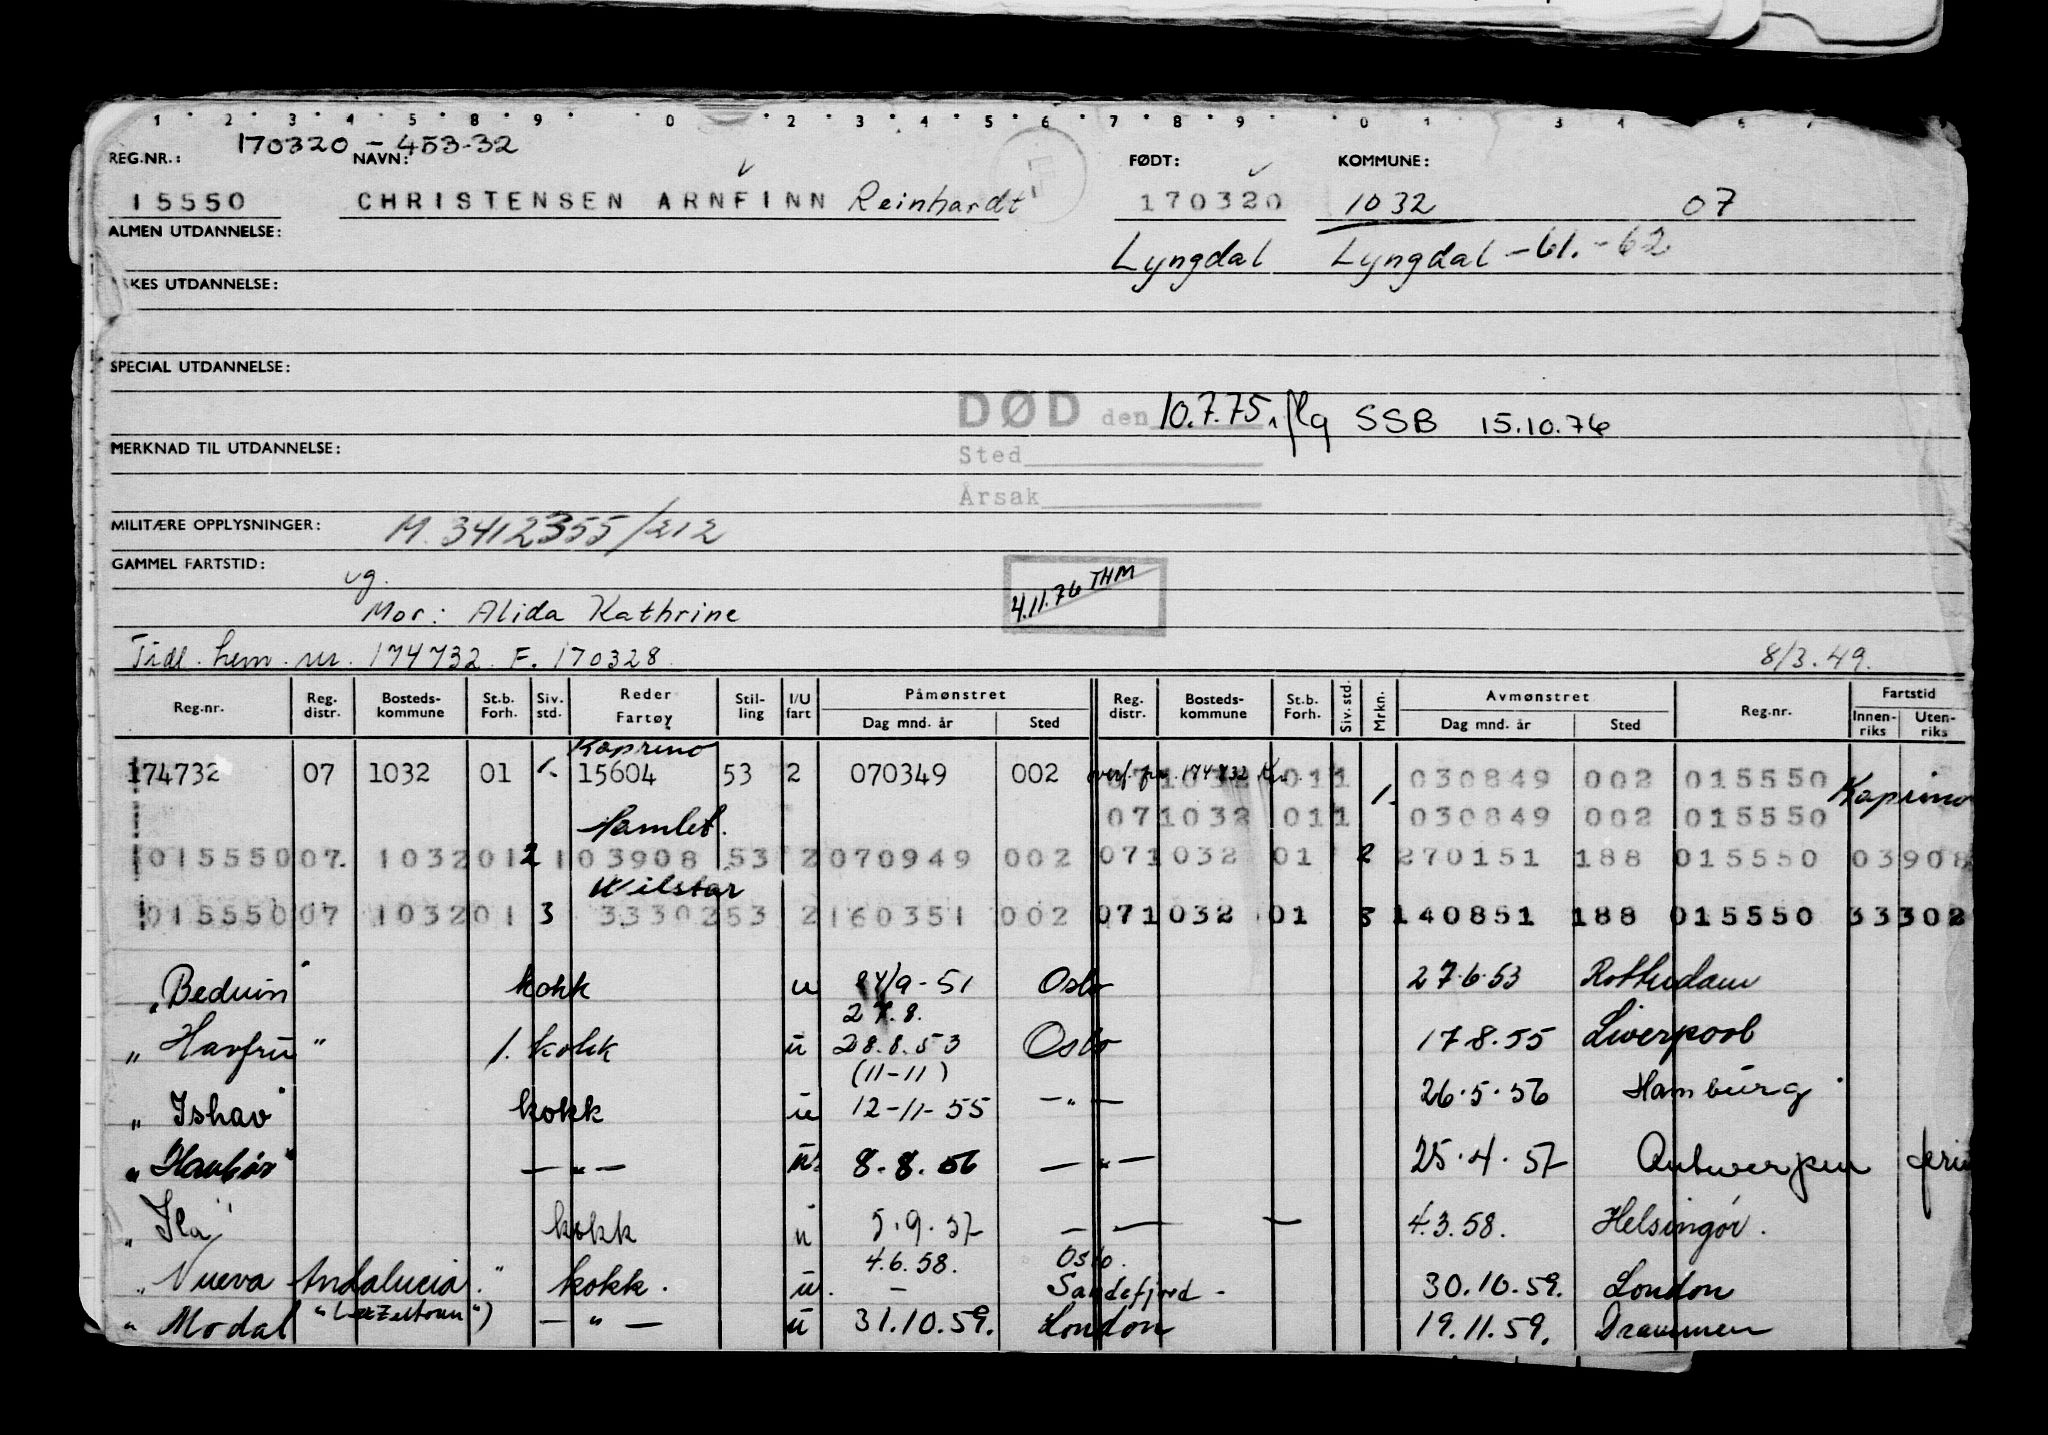 170320 - 453-32
REG.NR.: NAVN: FØDT: KOMMUNE:
15550 CHRISTENSEN ARNFINN Reinhardt 170320 1032 07
ALMEN UTDANNELSE: Lyngdal Lyngdal -61. -62
UTDANNELSE:
SPECIAL UTDANNELSE:
DØD den 10.7.75 iflg SSB 15.10.76
MERKNAD TIL UTDANNELSE: Sted
Årsak
MILITÆRE OPPLYSNINGER: M. 3412355/212
GAMMEL FARTSTID: ug.
4.11.76 THM
Mor: Alida Kathrine
Tidl. hem. nr. 174732 F. 170328 8/3.49.
Reg.nr. Reg. distr. Bosteds-kommune St.b. Forh. Siv. std. Reder Fartøy Stil-ling I/U fart Påmønstret Dag mnd. år Sted Reg. distr. Bosteds-kommune St.b. Forh. Siv. std. Mrkn. Avmønstret Dag mnd. år Sted Reg.nr. Fartstid Innen-riks Uten-riks
Kaprino
174732 07 1032 01 1. 15604 53 2 070349 002 overf. fra 174732 071032 011 1. 030849 002 015550 Kaprino
071032 011 030849 002 015550
Hamlet.
015550 07. 1032 01 2 103908 53 2 070949 002 071032 01 2 270151 188 015550 03908
Wilstar
015550 07 1032 01 3 33302 53 2 160351 002 071032 01 3 140851 188 015550 33302
"Beduin" kokk u 24/9-51 Oslo 27.6.53 Rotterdam
27.8.
"Havfru" 1. kokk u 28.8.53 Oslo 17.8.55 Liverpool
(11-11)
"Ishav" kokk u 12-11-55 -"- 26.5.56 Hamburg
"Havkør" -"- u. 8.8.56 -"- 25.4.57 Antwerpen
"Ila" kokk u 5.9.57 - - - 4.3.58. Helsingør.
4.6.58. Oslo.
"Nueva Andalucia." kokk. u. - Sandefjord - 30.10.59. London
"Modal -"- u 31.10.59. London 19.11.59. Drammen